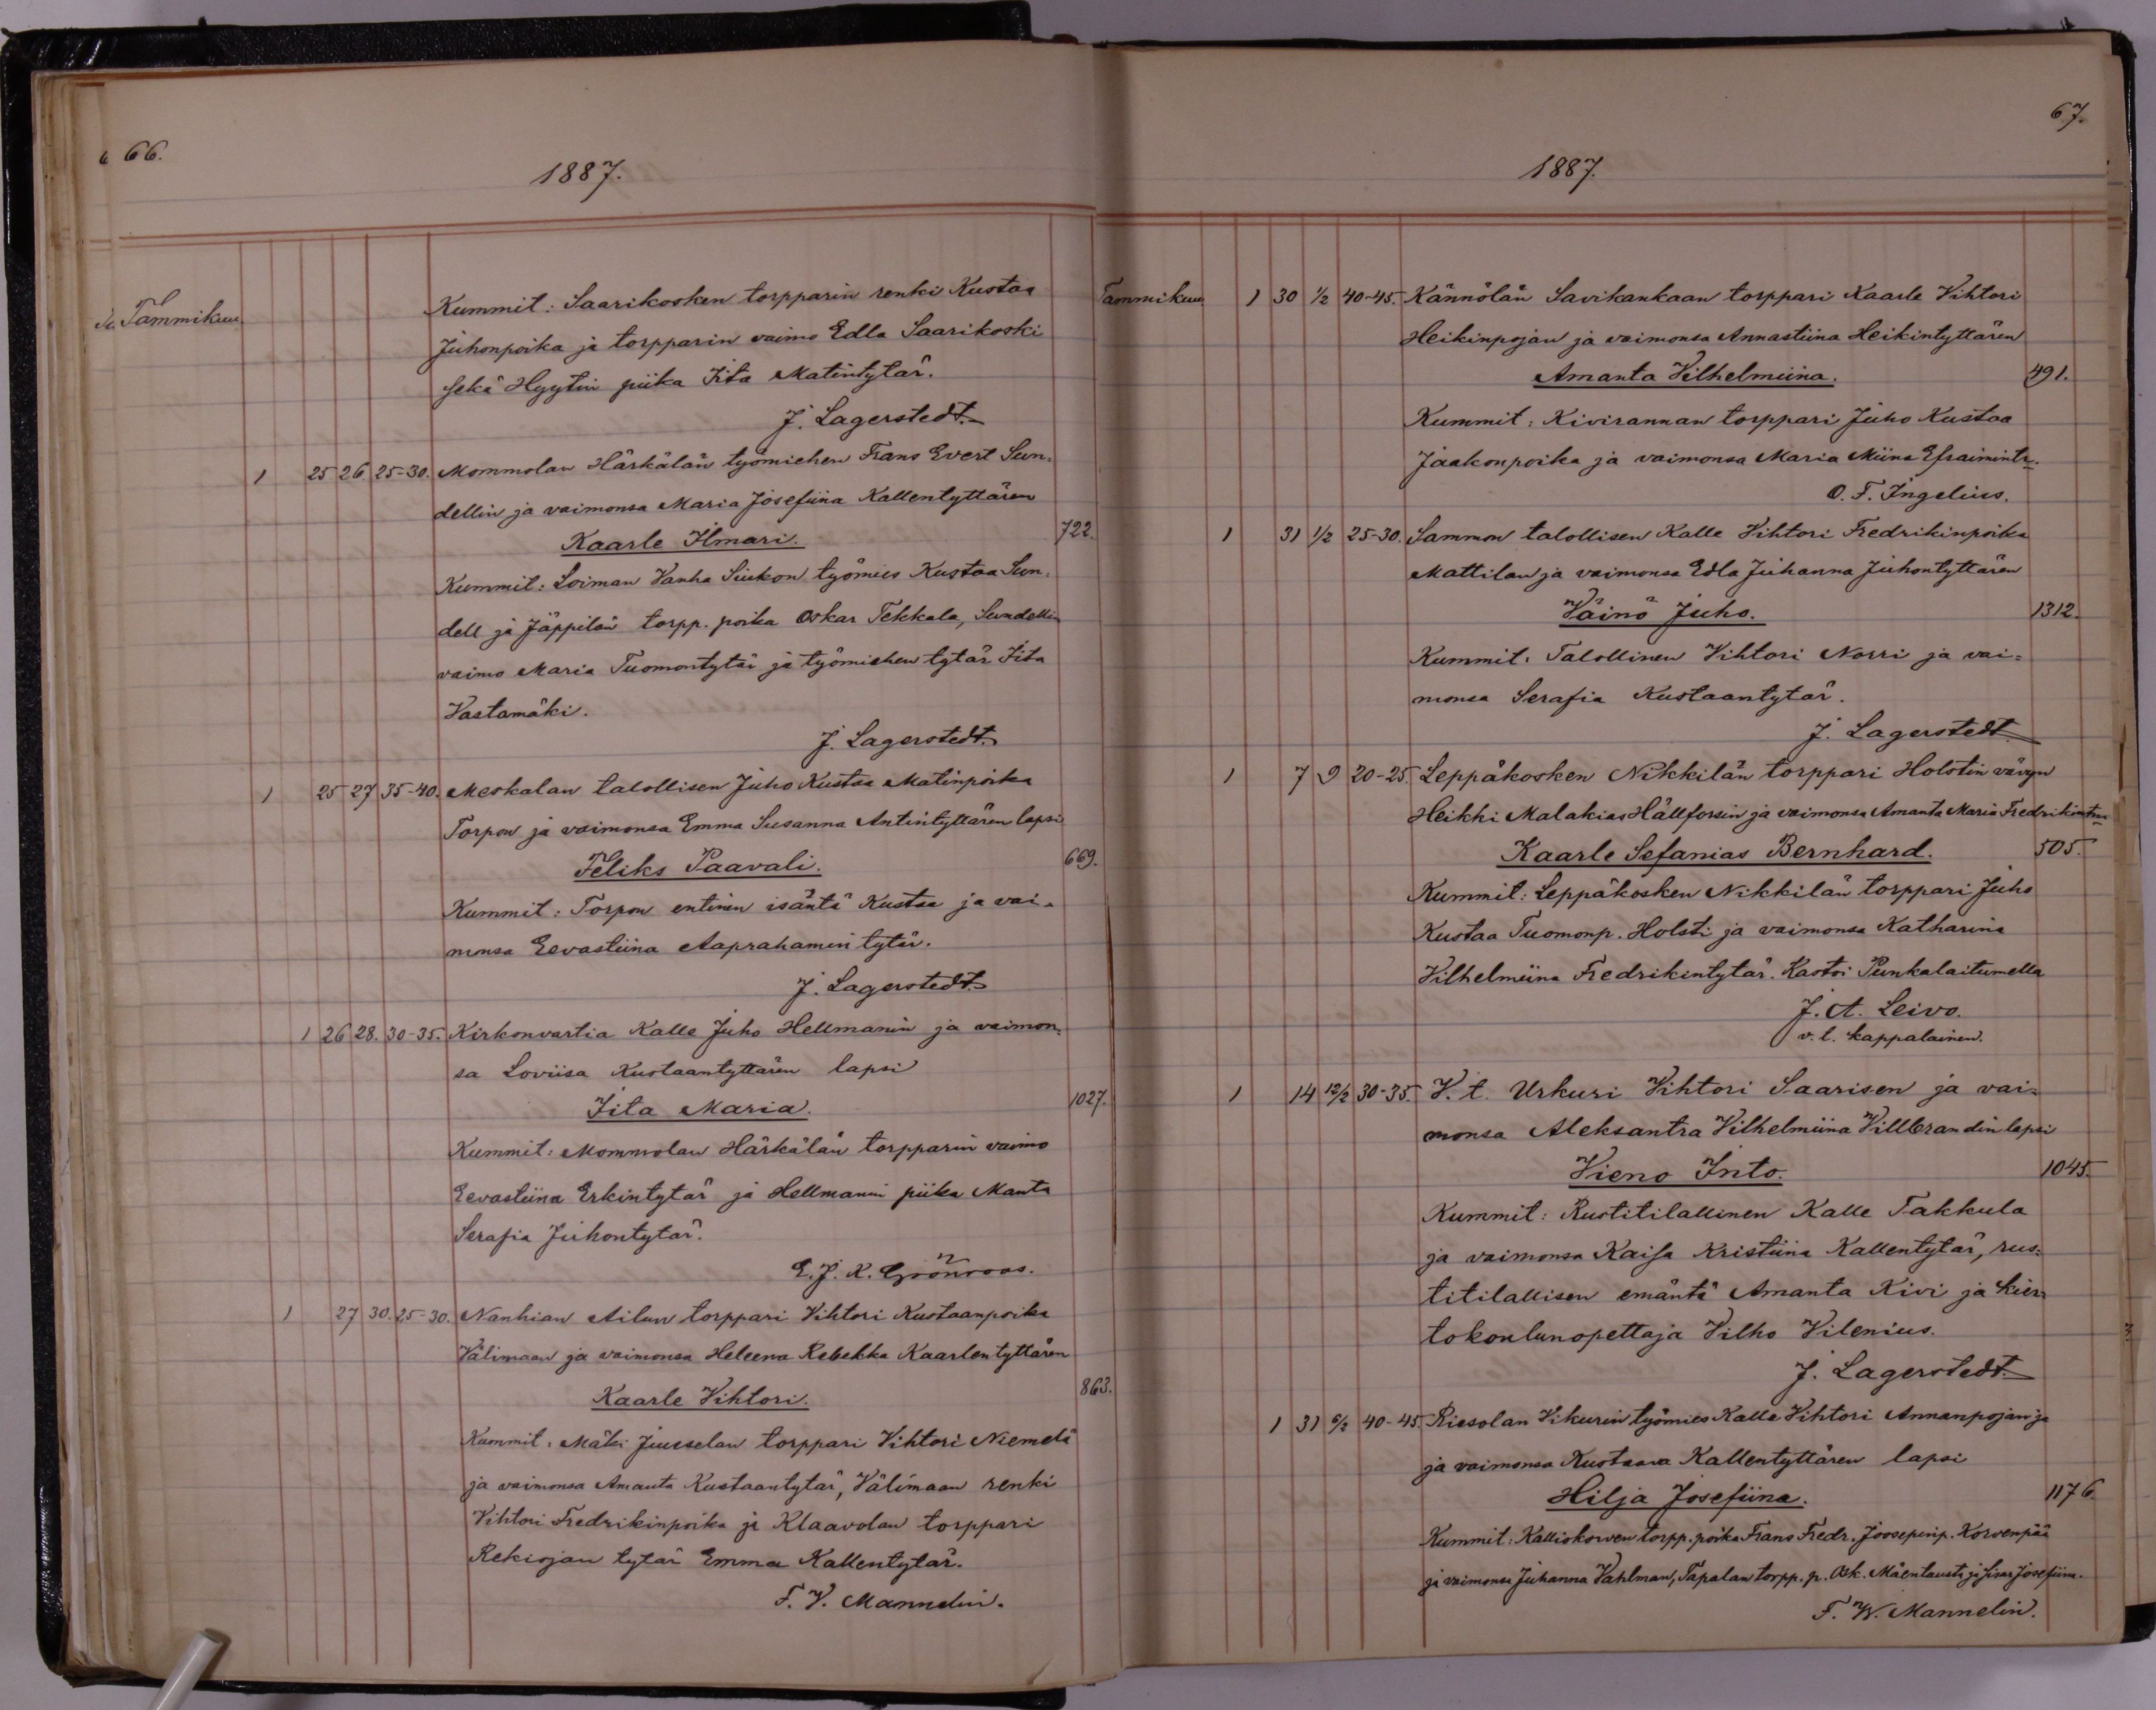 66.
1887.
Tammikuu
Kummit: Saarikosken torpparin renki Kustaa
Juhonpoika ja torpparin vaimo Edla Saarikoski
sekä Hyytin piika Iita Matintytär.
J. Lagerstedt.
1 25 26. 25-30. Mommolan Härkälän työmiehen Frans Evert Sun-
dellin ja vaimonsa Maria Josefiina Kallentyttären
Kaarle Ilmari. 722.
Kummit: Loiman Vanha Siukon työmies Kustaa Sun-
dell ja Jäppilän torpp. poika Oskar Tekkala, Sundellin
vaimo Maria Tuomontytär ja työmiehen tytär Iita
Vastamäki.
J. Lagerstedt.
1 25 27 35-40. Meskalan talollisen Juho Kustaa Matinpoika
Torpon ja vaimonsa Emma Susanna Antintyttären lapsi
Feliks Paavali. 669.
Kummit: Torpon entinen isäntä Kustaa ja vai-
monsa Eevastiina Aaprahamintytär.
J. Lagerstedt.
1 26 28. 30-35. Kirkonvartia Kalle Juho Hellmanin ja vaimon-
sa Loviisa Kustaantyttären lapsi
Iita Maria. 1027.
Kummit: Mommolan Härkälän torpparin vaimo
Eevastiina Erkintytär ja Hellmanin piika Manta
Serafia Juhontytär.
E. J. K. Grönroos.
1 27 30. 25-30. Nanhian Ailun torppari Vihtori Kustaanpoika
Välimaan ja vaimonsa Heleena Rebekka Kaarlentyttären
Kaarle Vihtori. 863.
Kummit: Mäki Juusselan torppari Vihtori Niemelä
ja vaimonsa Amanta Kustaantytär, Välimaan renki
Vihtori Fredrikinpoika ja Klaavolan torppari
Rekiojan tytär Emma Kallentytär.
F. V. Mannelin.
67.
1887.
Tammikuu 1 30 1/2 40-45. Kännölän Savikankaan torppari Kaarle Vihtori
Heikinpojan ja vaimonsa Annastiina Heikintyttären
Amanta Vilhelmiina. 491.
Kummit: Kivirannan torppari Juho Kustaa
Jaakonpoika ja vaimonsa Maria Miina Efraimintr.
O. F. Ingelius.
1 31 1/2 25-30. Sammon talollisen Kalle Vihtori Fredrikinpoika
Mattilan ja vaimonsa Edla Juhanna Juhontyttären
Väinö Juho. 1312.
Kummit: Talollinen Vihtori Norri ja vai-
monsa Serafia Kustaantytär.
J. Lagerstedt
1 7 9 20-25. Leppäkosken Nikkilän torppari Holstin vävyn
Heikki Malakias Hällforsin ja vaimonsa Amanta Maria Fredrikintr.
Kaarle Sefanias Bernhard. 505.
Kummit: Leppäkosken Nikkilän torppari Juho
Kustaa Tuomonp. Holsti ja vaimonsa Katharina
Vilhelmiina Fredrikintytär. Kastoi Punkalaitumella
J. A. Leivo.
v. t. kappalainen.
1 14 12/2 30-35. V. t. Urkuri Vihtori Saarisen ja vai-
monsa Aleksantra Vilhelmiina Villbrandin lapsi
Vieno Into. 1045.
Kummit: Rustitilallinen Kalle Takkula
ja vaimonsa Kaisa Kristiina Kallentytär, rus-
titilallisen emäntä Amanta Kivi ja kier-
tokoulunopettaja Vilho Vilenius.
J. Lagerstedt.
1 31 6/2 40-45. Riesolan Vikurin työmies Kalle Vihtori Annanpojan ja
ja vaimonsa Kustaava Kallentyttären lapsi
Hilja Josefiina. 1176.
Kummit: Kalliokorven torpp. poika Frans Fredr. Joosepinp. Korvenpää
ja vaimonsa Juhanna Vahlman, Tapalan torpp. p. Osk. Mäentausti ja sisar Josefiina.
F. W. Mannelin.